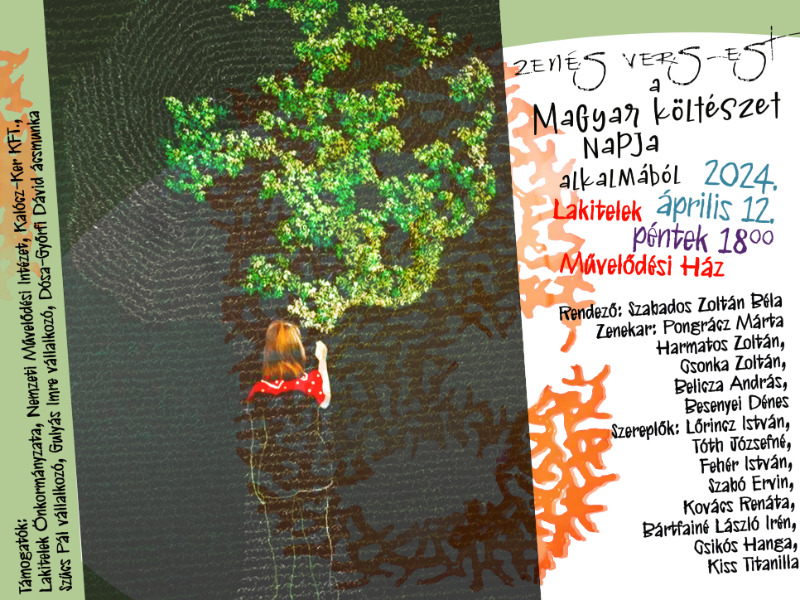 ZENÉS VERS-EST
a
Magyar költészet
NAPJA
alkalmából 2024.
Lakitelek április 12.
péntek 18⁰⁰
Művelődési Ház
Rendező: Szabados Zoltán Béla
Zenekar: Pongrácz Márta
Harmatos Zoltán,
Csonka Zoltán,
Belicza András,
Besenyei Dénes
Szereplők: Lőrincz István,
Tóth Józsefné,
Fehér István,
Szabó Ervin,
Kovács Renáta,
Bártfainé László Irén,
Csikós Hanga,
Kiss Titanilla
Támogatók:
Lakitelek Önkormányzata, Nemzeti Művelődési Intézet, Kalócz-Ker KFT.,
Szűcs Pál vállalkozó, Gulyás Imre vállalkozó, Dósa-Győrfi Dávid ácsmunka